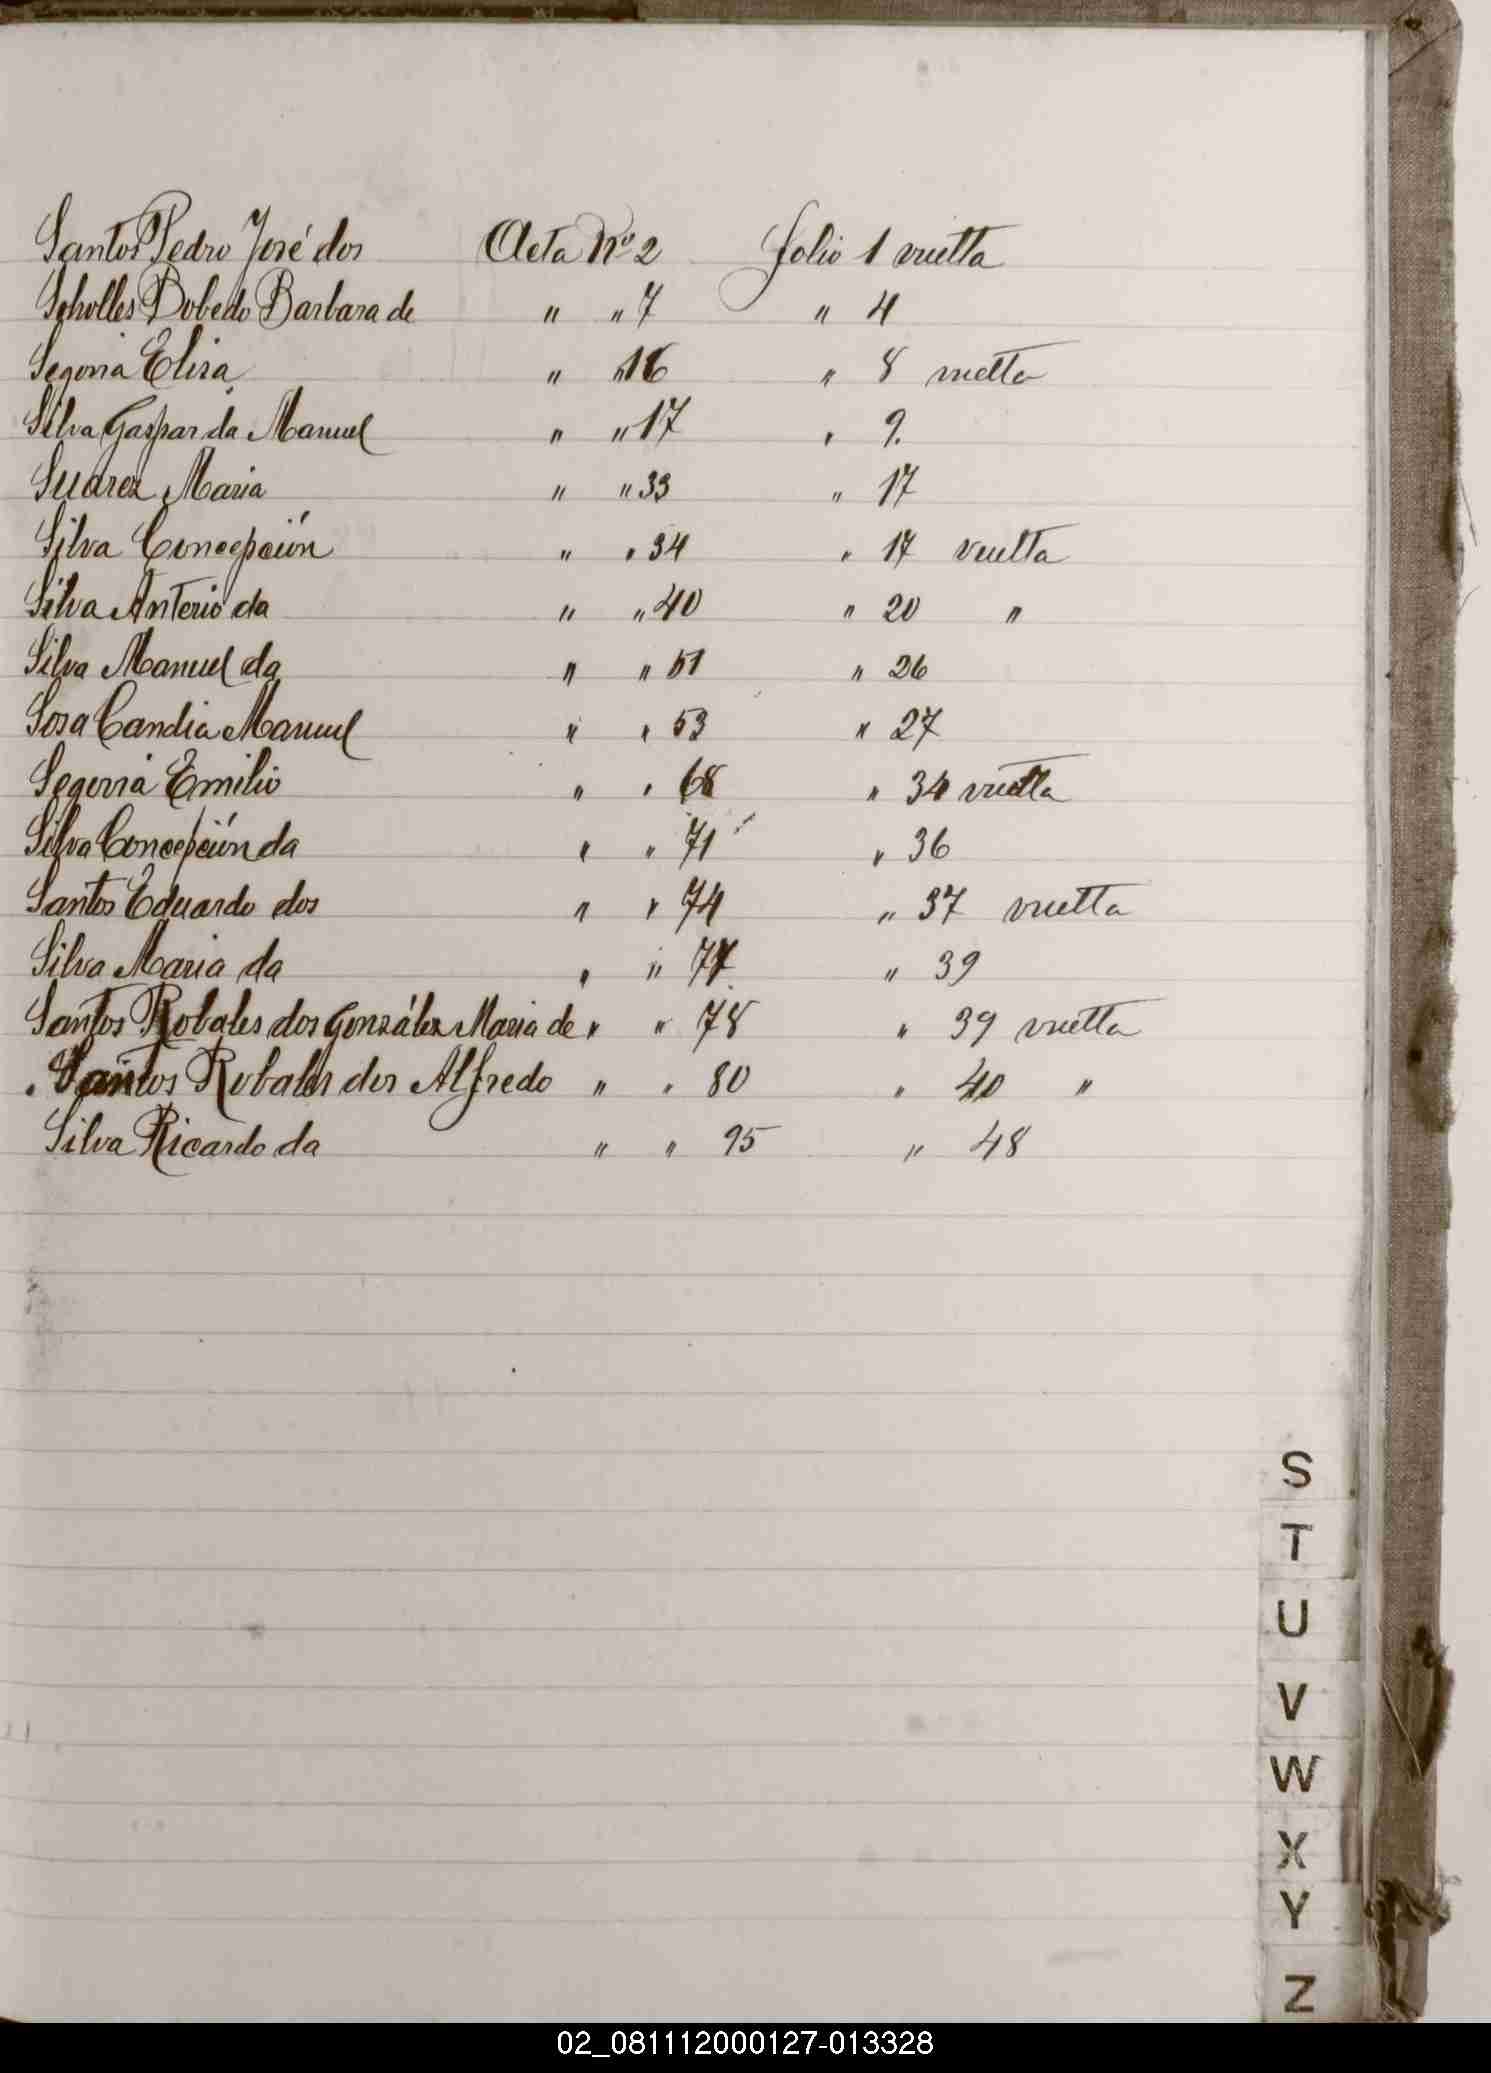 Santos Pedro José dos Acta Nº 2 folio 1 vuelta
Scholles Bobedo Barbara de " " 7 " 4
Segovia Elisa " " 16 " 8 vuelta
Silva Gaspar da Manuel " " 17 " 9.
Suarez Maria " " 33 " 17
Silva Concepción " " 34 " 17 vuelta
Silva Anterio da " " 40 " 20 "
Silva Manuel da " " 51 " 26
Sosa Candia Manuel " " 53 " 27
Segovia Emilio " " 68 " 34 vuelta
Silva Concepción da " " 71 " 36
Santos Eduardo dos " " 74 " 37 vuelta
Silva Maria da " " 77 " 39
Santos Robales dos González Maria de " " 78 " 39 vuelta
Santos Robales dos Alfredo " " 80 " 40 "
Silva Ricardo da " " 95 " 48
S
T
U
V
W
X
Y
Z
02_081112000127-013328